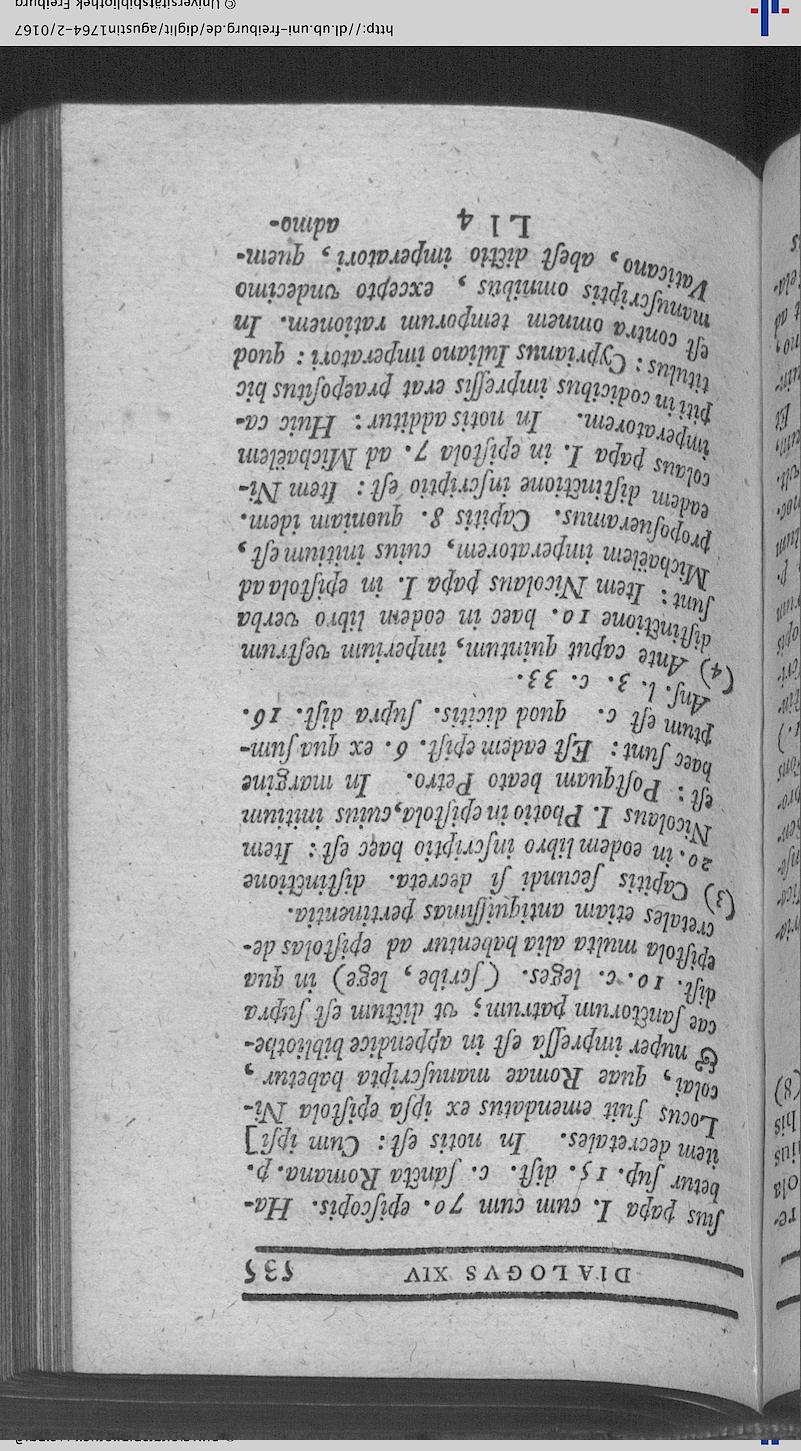 DIALOGVS XIV 535
ſus papa I. cum cum 70. epiſcopis. Ha-
betur ſup. 15. diſt. c. ſancta Romana. p.
item decretales. In notis eſt: Cum ipſi]
Locus fuit emendatus ex ipſa epiſtola Ni-
colai, quae Romae manuſcripta habetur,
& nuper impreſſa eſt in appendice bibliothe-
cae ſanctorum patrum; vt dictum eſt ſupra
diſt. 10. c. leges. (ſcribe, lege) in qua
epiſtola multa alia habentur ad epiſtolas de-
cretales etiam antiquiſſimas pertinentia.
(3) Capitis ſecundi ſi decreta. diſtinctione
20. in eodem libro inſcriptio haec eſt: Item
Nicolaus I. Photio in epiſtola, cuius initium
eſt: Poſtquam beato Petro. In margine
haec ſunt: Eſt eadem epiſt. 6. ex qua ſum-
ptum eſt c. quod dicitis. ſupra diſt. 16.
Anſ. l. 3. c. 33.
(4) Ante caput quintum, imperium veſtrum
diſtinctione 10. haec in eodem libro verba
ſunt: Item Nicolaus papa I. in epiſtola ad
Michaëlem imperatorem, cuius initium eſt,
propoſueramus. Capitis 8. quoniam idem.
eadem diſtinctione inſcriptio eſt: Item Ni-
colaus papa I. in epiſtola 7. ad Michaëlem
imperatorem. In notis additur: Huic ca-
piti in codicibus impreſſis erat praepoſitus hic
titulus: Cyprianus Iuliano imperatori: quod
eſt contra omnem temporum rationem. In
manuſcriptis omnibus, excepto vndecimo
Vaticano, abeſt dictio imperatori, quem-
Ll 4 admo-
http://dl.ub.uni-freiburg.de/diglit/agustin1764-2/0167
© Universitätsbibliothek Freiburg